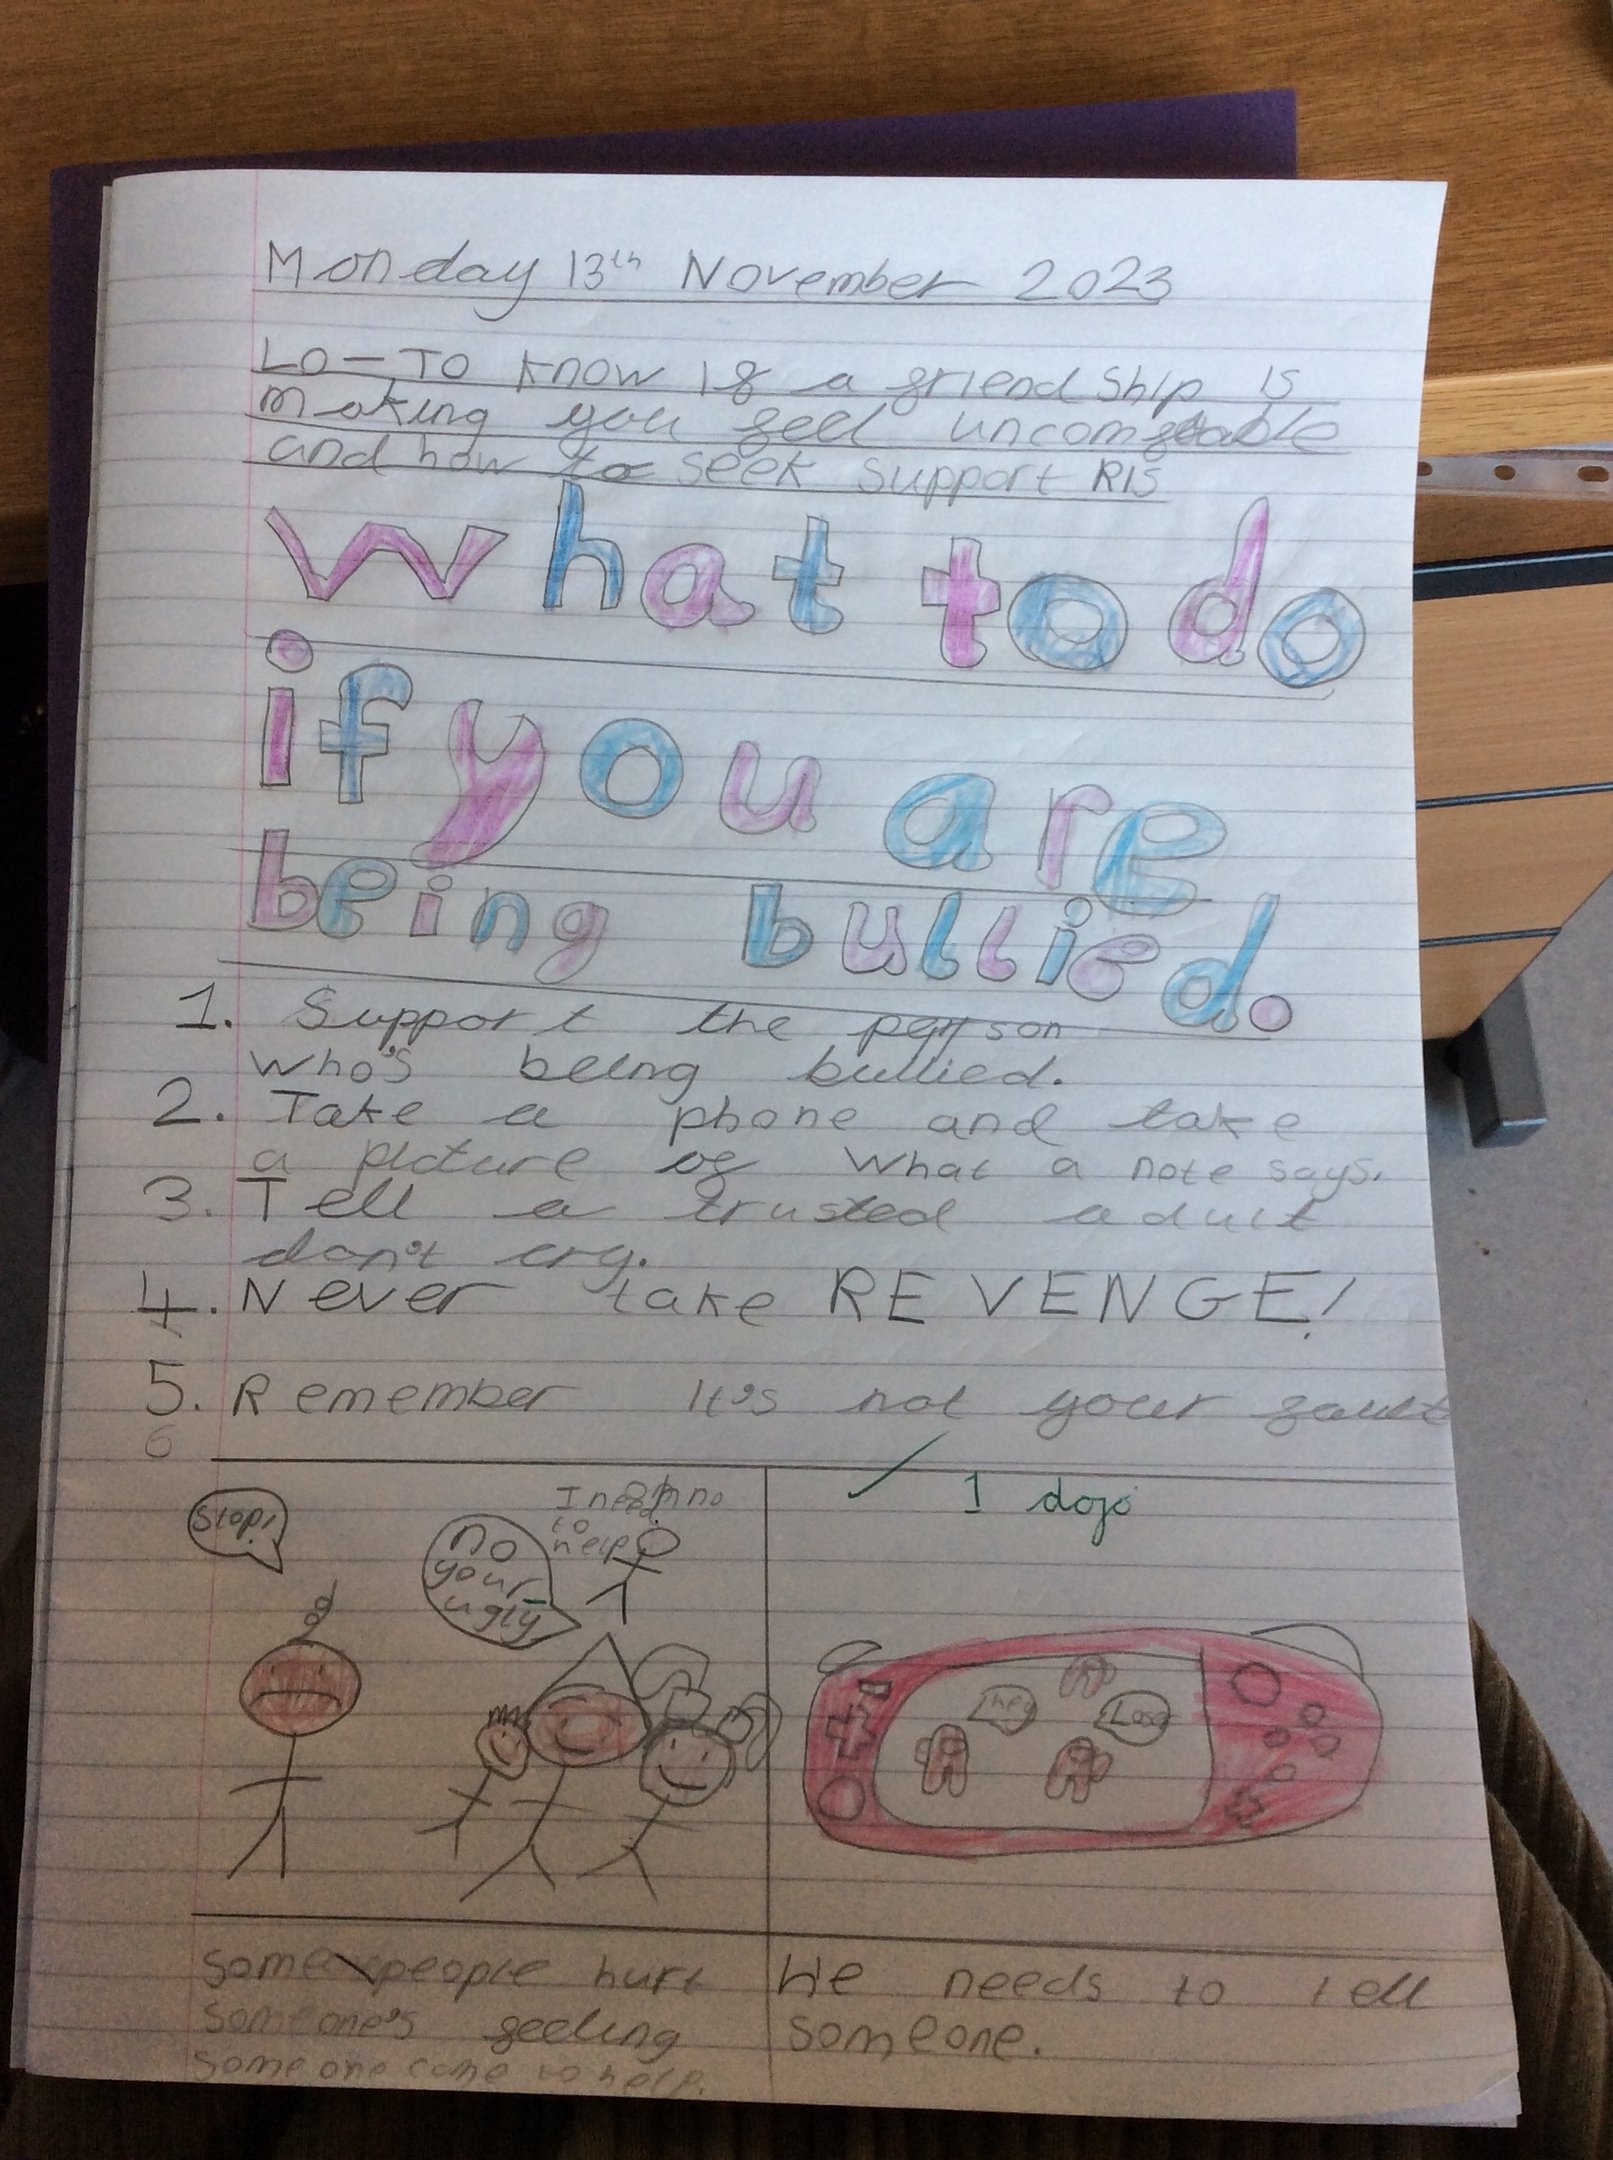 Monday 13th November 2023
LO - To know if a friendship is
making you feel uncomftable
and how to seek support RIS
What to do
if you are
being bullied.
1. Support the person
who's being bullied.
2. Take a phone and take
a picture of what a note says.
3. Tell a trusted adult
don't cry.
4. Never take REVENGE!
5. Remember it's not your fault
6
1 dojo
Stop!
no
your
ugly
I need
to
help
some people hurt
someone's feeling
someone come to help.
He needs to tell
someone.